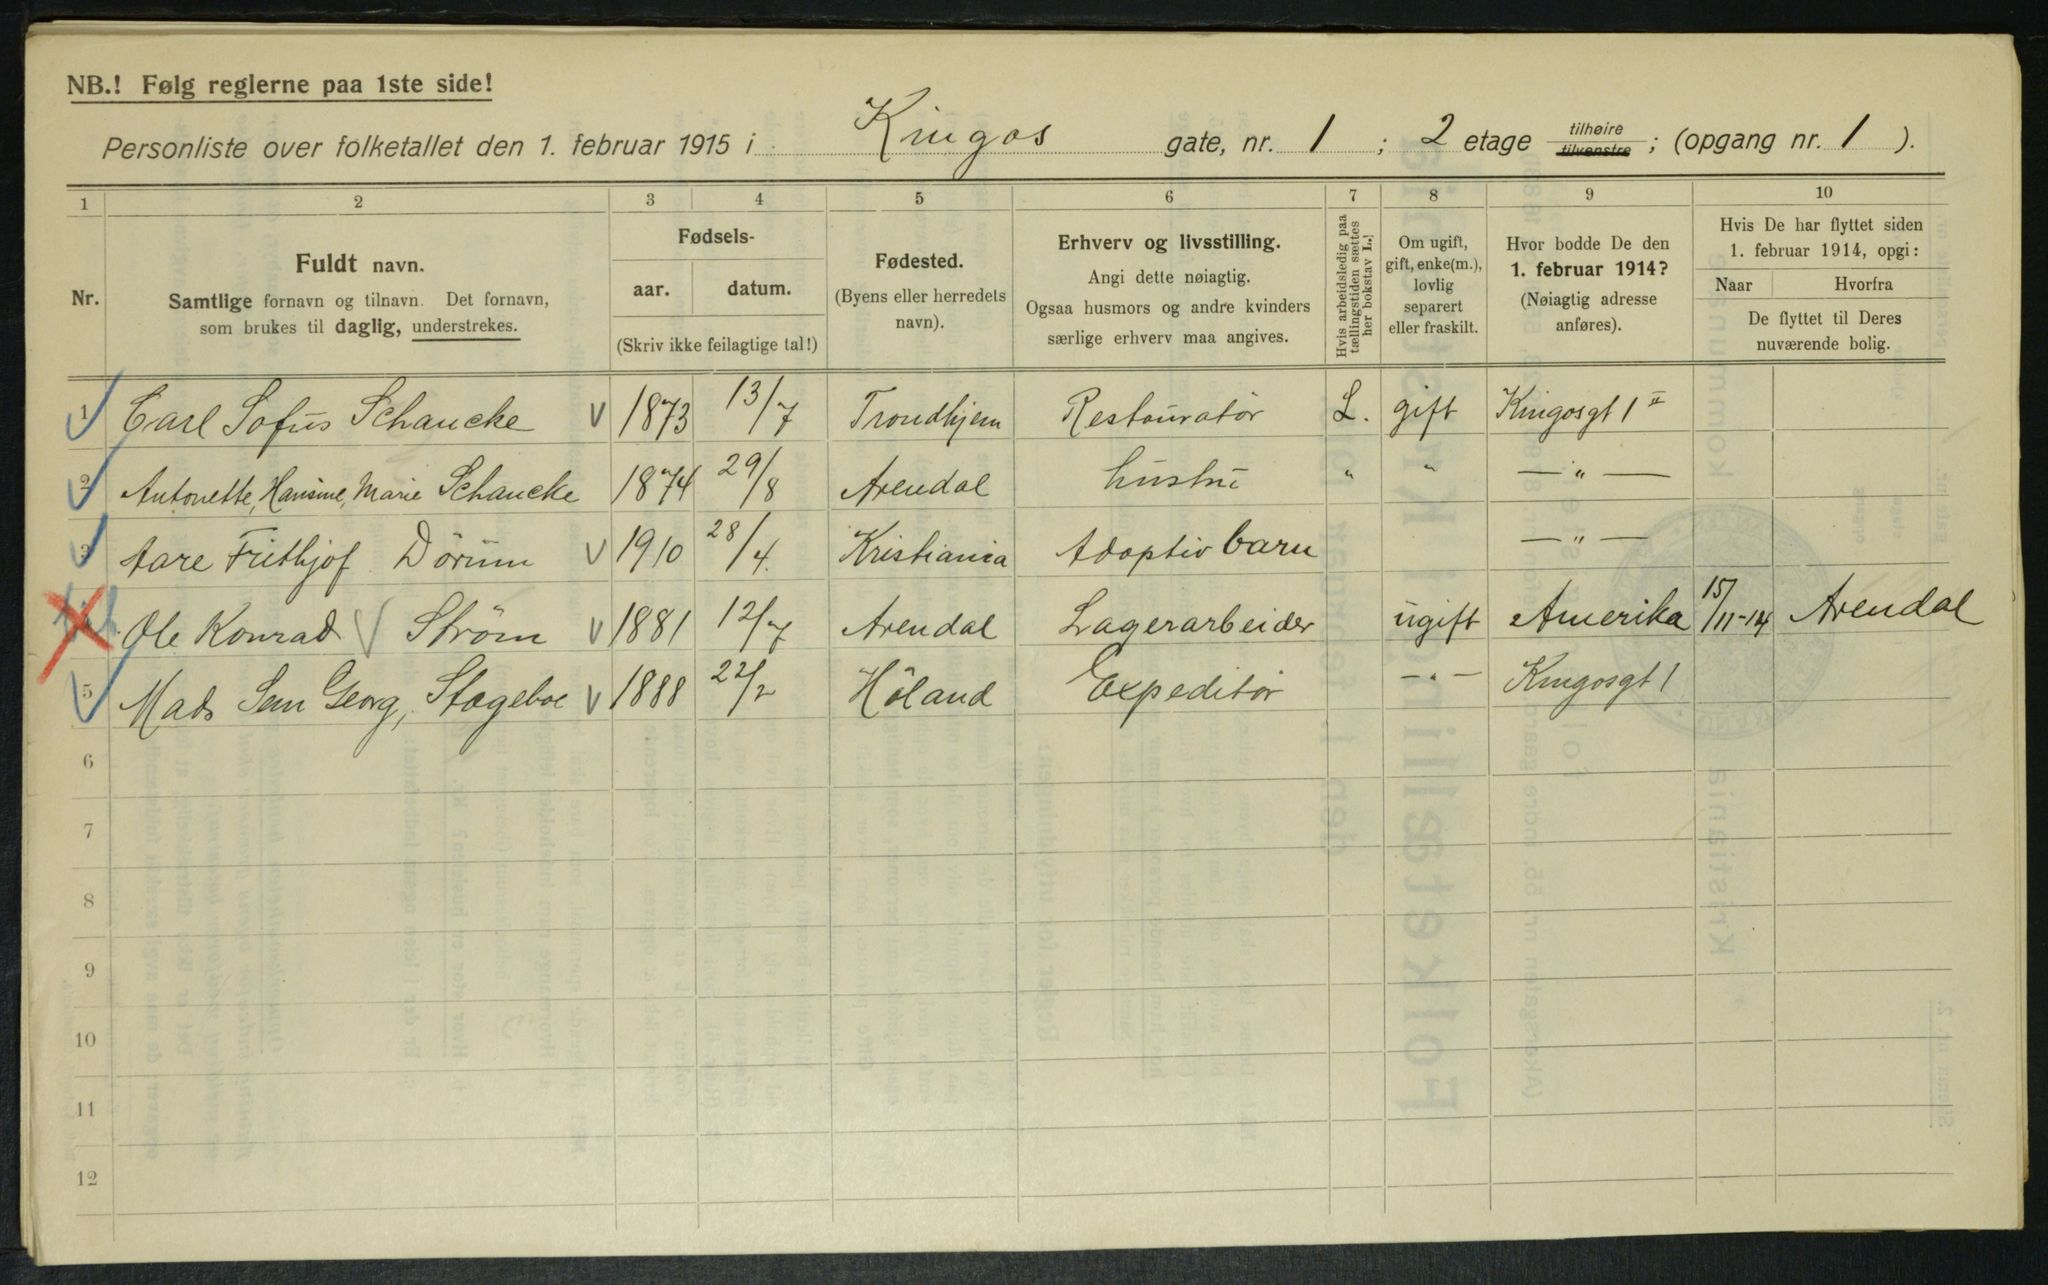 NB.! Følg reglerne paa 1ste side!
Personliste over folketallet den 1. februar 1915 i Kingos gate, nr. 1 ; 2 etage tilhøire tilvenstre ; (opgang nr. 1 ).
1 2 3 4 5 6 7 8 9 10
Nr.
Fuldt navn.
Samtlige fornavn og tilnavn. Det fornavn,
som brukes til daglig, understrekes.
Fødsels-
aar. datum.
(Skriv ikke feilagtige tal!)
Fødested.
(Byens eller herredets
navn).
Erhverv og livsstilling.
Angi dette nøiagtig.
Ogsaa husmors og andre kvinders
særlige erhverv maa angives.
Hvis arbeidsledig paa
tællingstiden sættes
her bokstav L.!
Om ugift,
gift, enke(m.),
lovlig
separert
eller fraskilt.
Hvor bodde De den
1. februar 1914?
(Nøiagtig adresse
anføres).
Hvis De har flyttet siden
1. februar 1914, opgi:
Naar Hvorfra
De flyttet til Deres
nuværende bolig.
1 Carl Sofus Schancke 1873 13/7 Trondhjem Restauratör L. gift Kingosgt 1 II
2 Antonette, Hansine, Marie Schancke 1874 29/8 Arendal hustru " " — " —
3 Aare Frithjof Dörum 1910 28/4. Kristiania Adoptiv barn — " —
4 Ole Konrad Ström 1881 12/7 Arendal Lagerarbeider ugift Amerika 15/11-14 Arendal
5 Mads Sem Georg, Stageboe 1888 22/2 Höland Expeditör — " — Kingosgt 1
6
7
8
9
10
11
12